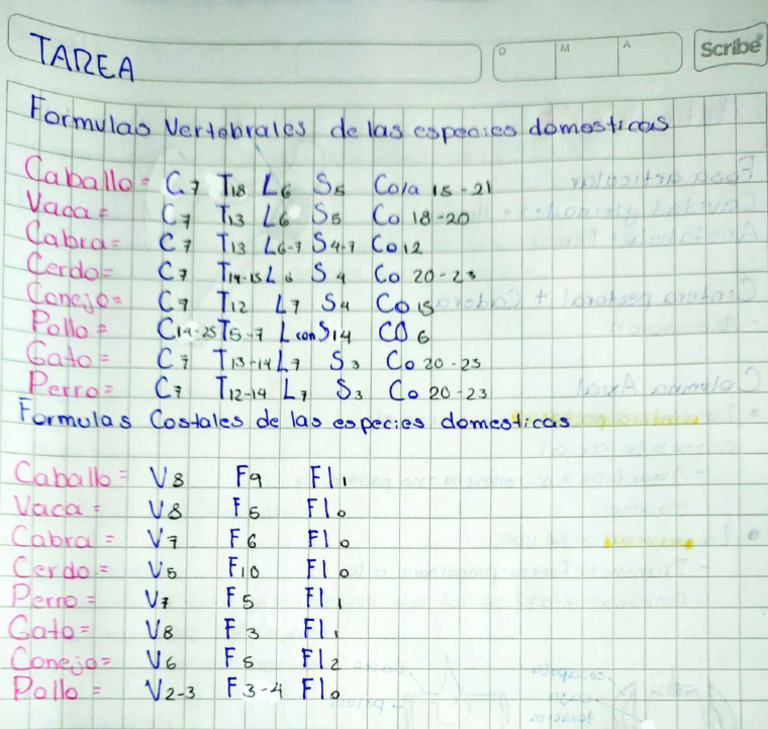 TAREA
D M A
Scribe
Formulas Vertebrales de las especies domesticas
Caballo = C7 T18 L6 S5 Cola 15-21
Vaca = C7 T13 L6 S5 Co 18-20
Cabra = C7 T13 L6-7 S4-7 Co12
Cerdo = C7 T14-15 L6 S4 Co 20-23
Conejo = C7 T12 L7 S4 Co 15
Pollo = C14-25 T5-7 L con S14 CO 6
Gato = C7 T13-14 L7 S3 Co 20-23
Perro = C7 T12-14 L7 S3 Co 20-23
Formulas Costales de las especies domesticas
Caballo = V8 F9 Fl1
Vaca = V8 F5 Fl0
Cabra = V7 F6 Fl0
Cerdo = V5 F10 Fl0
Perro = V7 F5 Fl1
Gato = V8 F3 Fl1
Conejo = V6 F5 Fl2
Pollo = V2-3 F3-4 Fl0